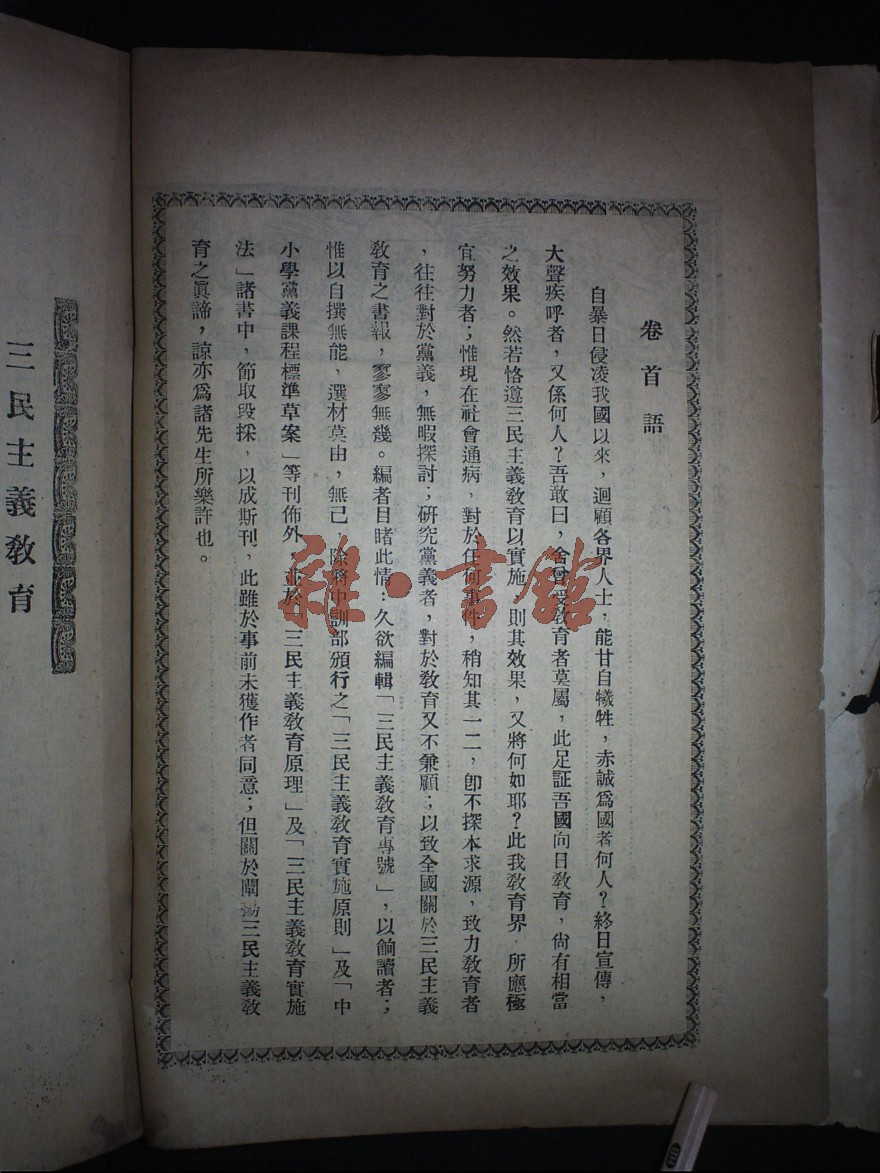 卷首語
自暴日侵凌我國以來，迴顧各界人士，能甘自犧牲，赤誠爲國者何人？終日宣傳，
大聲疾呼者，又係何人？吾敢曰，舍曾受敎育者莫屬，此足証吾國向日敎育，尙有相當
之效果。然若恪遵三民主義敎育以實施，則其效果，又將何如耶？此我敎育界，所應極
宜努力者；惟現在社會通病，對於任何事件，稍知其一二，卽不探本求源，致力敎育者
，往往對於黨義，無暇探討；研究黨義者，對於敎育又不兼顧；以致全國關於三民主義
敎育之書報，寥寥無幾。編者目睹此情：久欲編輯「三民主義敎育專號」，以餉讀者；
惟以自撰無能，選材莫由，無已，除將中訓部頒行之「三民主義敎育實施原則」及「中
小學黨義課程標準草案」等刊佈外，並於「三民主義敎育原理」及「三民主義敎育實施
法」諸書中，節取段採，以成斯刊，此雖於事前未獲作者同意；但關於闡揚三民主義敎
育之眞諦，諒亦爲諸先生所樂許也。
三民主義敎育
雜·書館